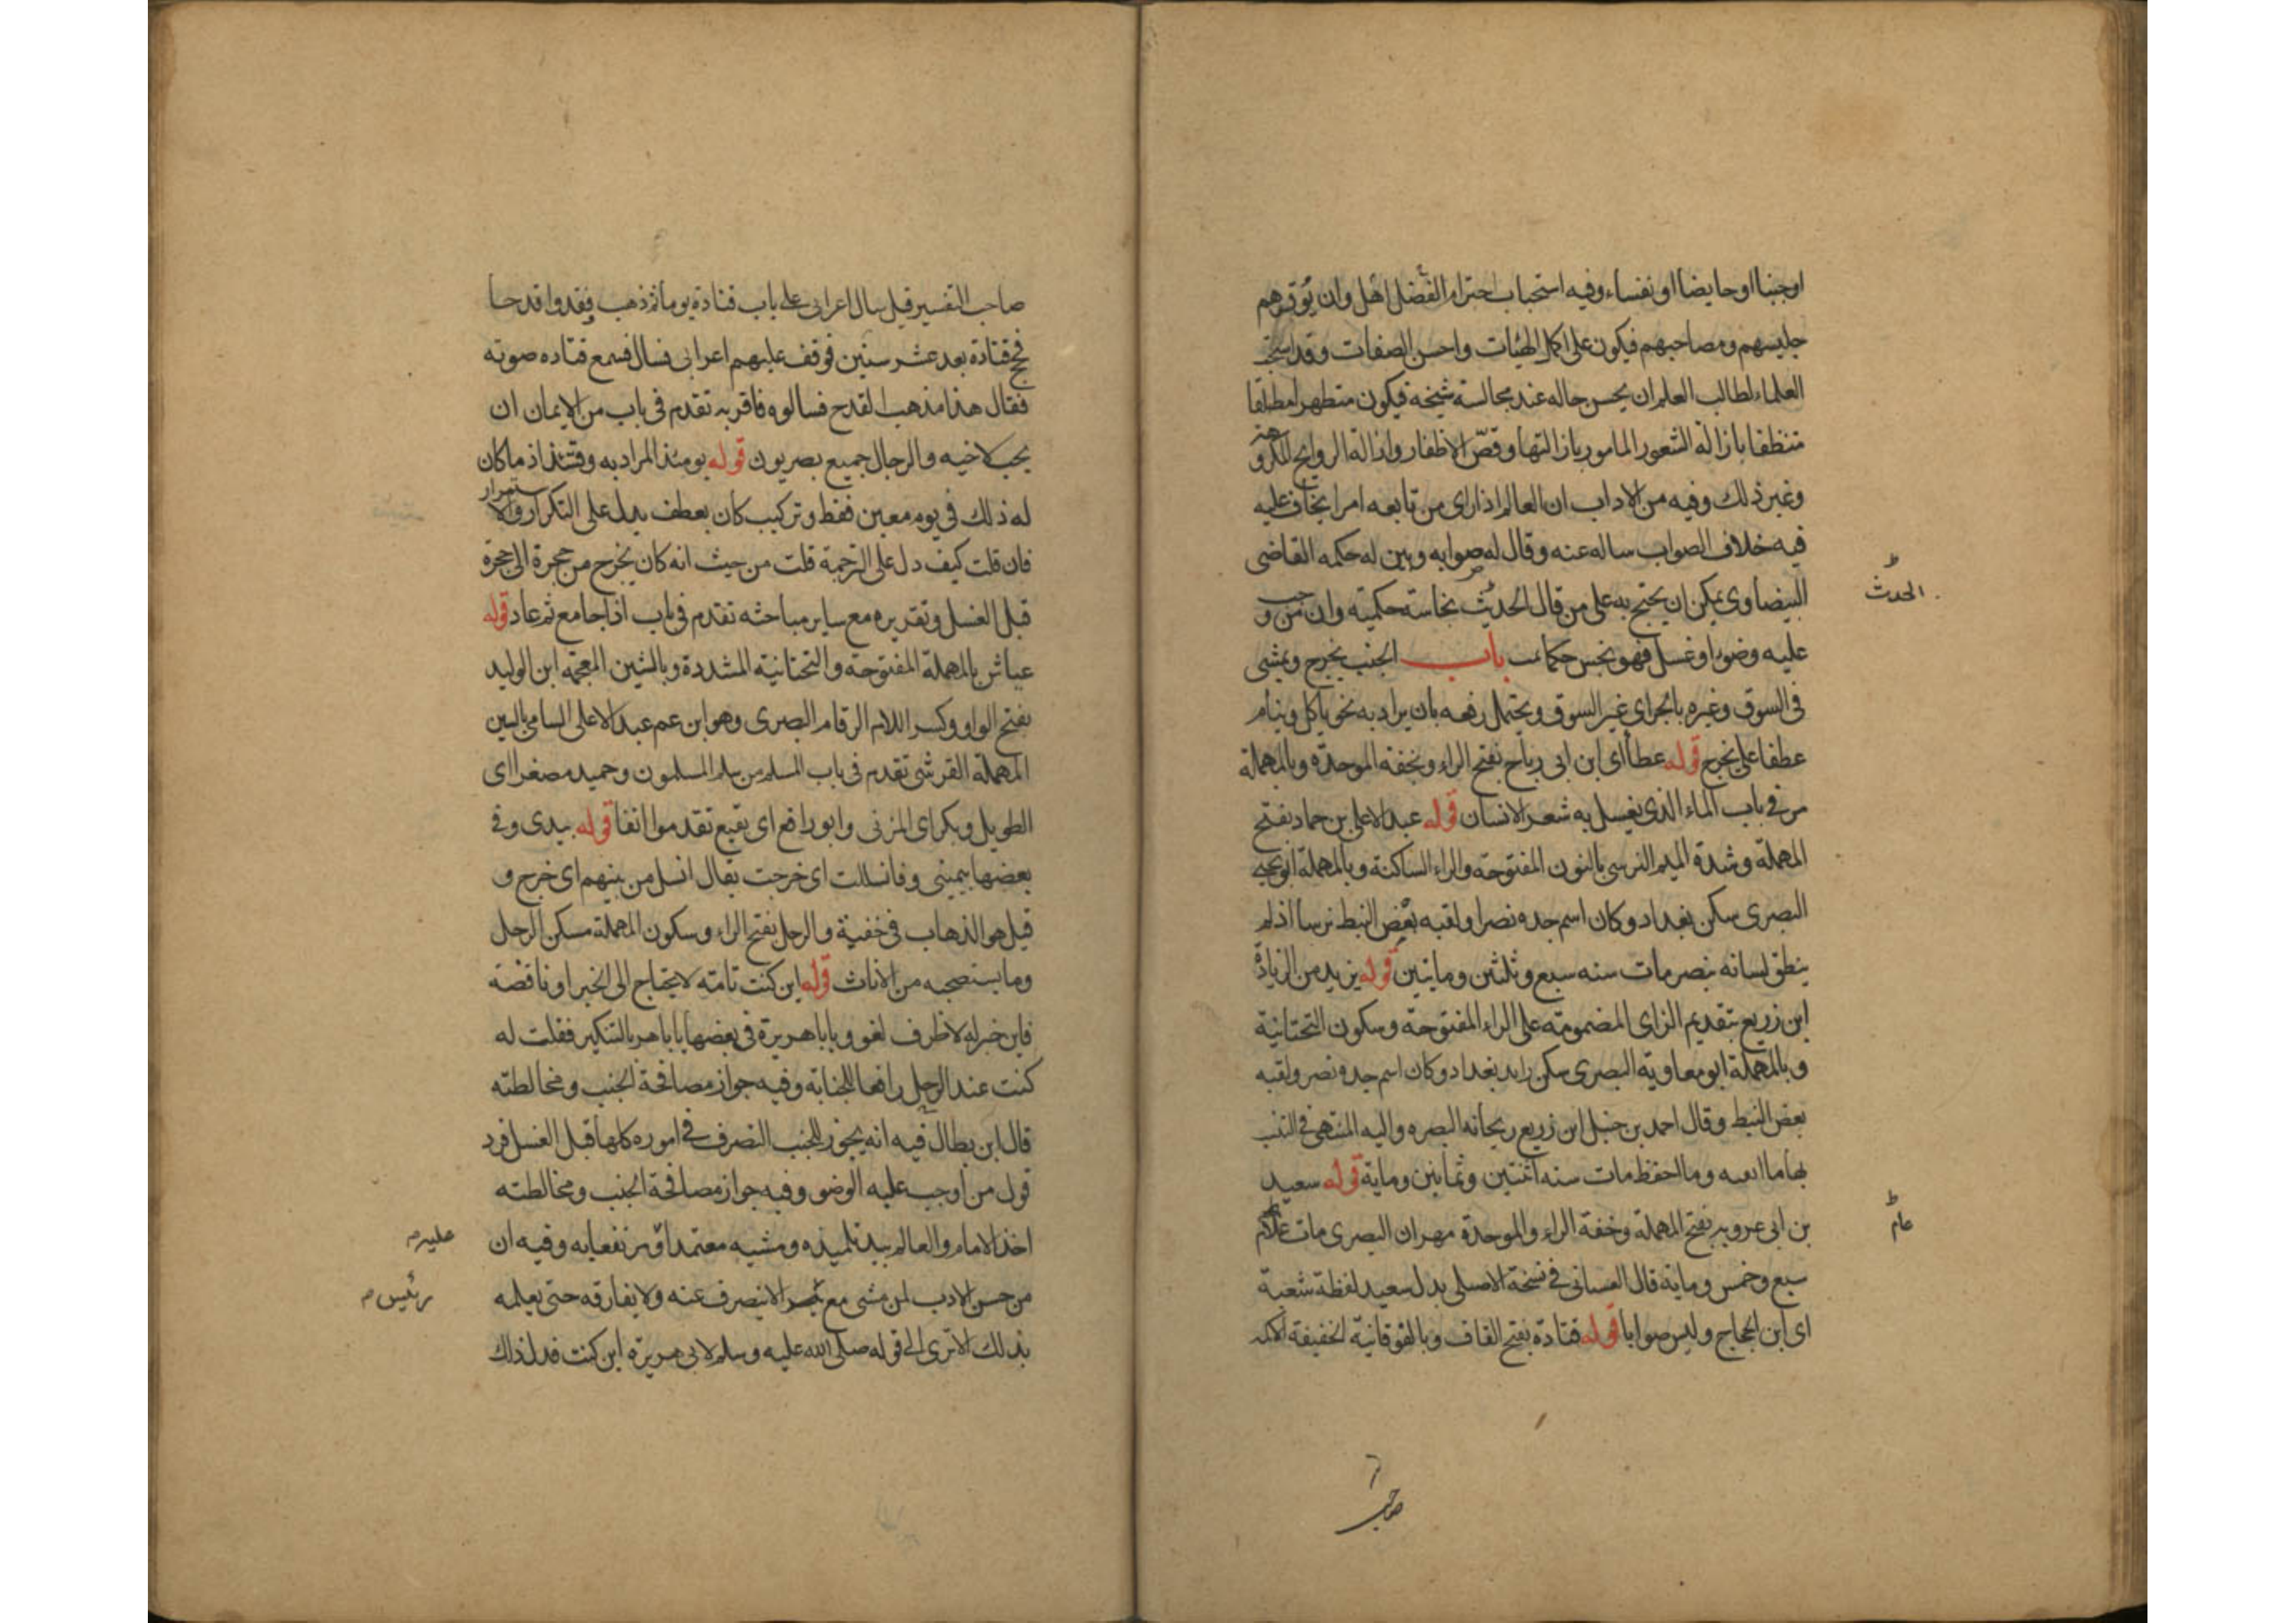 اوجنبا او حايضا او نفساء وفيه استحباب احترام اهل الفضل وان يوقرهم
جليسهم ومصاحبهم فيكون على اكمل الهيئات واحسن الصفات وقد استحب
العلماء لطالب العلم ان يحسن حاله عند مجالسة شيخه فيكون متطهرا
متنظفا بازالة الشعور المامور بازالتها وقص الاظفار وازالة الروايح المكروهة
وغير ذلك وفيه من الاداب ان العالم اذا راى من تابعه امرا يخاف عليه
فيه خلاف الصواب ساله عنه وقال له صوابه وبين له حكمه القاضى
البيضاوى يمكن ان يحتج به على من قال الحدث نجاسة حكمية وان من وجب
عليه وضوء او غسل فهو نجس حكما باب الجنب يخرج ويمشى
فى السوق وغيره بالجر اى غير السوق ويحتمل رفعه بان يراد به نحو ياكل وينام
عطفا على يخرج قوله عطا اى ابن ابى رباح بفتح الراء وبخفة الموحدة وبالمهملة
مر فى باب الماء الذى يغسل به شعر الانسان قوله عبد الاعلى بن حماد بفتح
المهملة وشدة الميم النرسى بالنون المفتوحة والراء الساكنة وبالمهملة ابو يحيى
البصرى سكن بغداد وكان اسم جده نصرا ولقبه بعض النبط نرسا اذ لم
ينطق لسانه بنصر مات سنه سبع وثلثين وماتين قوله يزيد من الزيادة
ابن زريع بتقديم الزاى المضمومة على الراء المفتوحة وسكون التحتانية
وبالمهملة ابو معاوية البصرى سكن بغداد وكان اسم جده نصر ولقبه
بعض النبط وقال احمد بن حنبل ابن زريع ريحانه البصره واليه المنتهى فى التثبت
بها ما وما احفظ مات سنه اثنتين وثمانين وماية قوله سعيد
بن ابى عروبه بفتح المهملة وخفة الراء والموحدة مهران البصرى مات عام
سبع وخمس وماية قال الغسانى فى نسخة الاصلى بدل سعيد لفظة شعبة
اى ابن الحجاج وليس صوابا قوله قتادة بفتح القاف وبالفوقانية الخفيفة الاكمه
الحدث
عام
صاحب
صاحب التفسير قيل سال اعرابى على باب قتادة يوما ثم ذهب ففقدوا قدحا
فحج قتادة بعد عشر سنين فوقف عليهم اعرابى فسال فسمع قتاده صوته
فقال هذا مذهب القدح فسالوه فاقر به تقدم فى باب من الايمان ان
يحب لاخيه والرجال جميع بصريون قوله يومئذ المراد به وقتئذ اذ ما كان
له ذلك فى يوم معين فقط وتركيب كان يطوف يدل على التكرار والاستمرار
فان قلت كيف دل على الترجمة قلت من حيث انه كان يخرج من حجرة الى حجرة
قبل الغسل وتقريره مع ساير مباحثه تقدم فى باب اذا جامع ثم عاد قوله
عياش بالمهملة المفتوحة والتحتانية المشددة وبالشين المعجمه ابن الوليد
بفتح الواو وكسر اللام الرقام البصرى وهو ابن عم عبد الاعلى السامى بالسين
المهملة القرشى تقدم فى باب المسلم من سلم المسلمون وحميد مصغرا اى
الطويل وبكر اى المزنى وابو رافع اى نفيع تقدموا انفا قوله بيدى وفى
بعضها بيمينى وفانسللت اى خرجت يقال انسل من بينهم اى خرج و
قيل هو الذهاب فى خفية والرحل بفتح الراء وسكون المهملة مسكن الرجل
وما يستصحبه من الاثاث قوله اين كنت تامة لا يحتاج الى الخبر او ناقصة
فاين خبر له لا ظرف لغو ويا با هريرة فى بعضها يا با هر بالتنكير فقلت له
كنت عند الرحل رافعا للجنابة وفيه جواز مصافحة الجنب ومخالطته
قال ابن بطال فيه انه يجوز للجنب التصرف فى اموره كلها قبل الغسل فرد
قول من اوجب عليه الوضو وفيه جواز مصافحة الجنب ومخالطته
اخذ الامام والعالم بيد تلميذه ومشيه معتمدا ومرتفعا به وفيه ان
من حسن الادب لمن مشى مع الانصرف عنه ولا يفارقه حتى يعلمه
بذلك الا ترى الى قوله صلى الله عليه وسلم لابى هريرة اين كنت فدل ذلك
عليه م
رئيس م